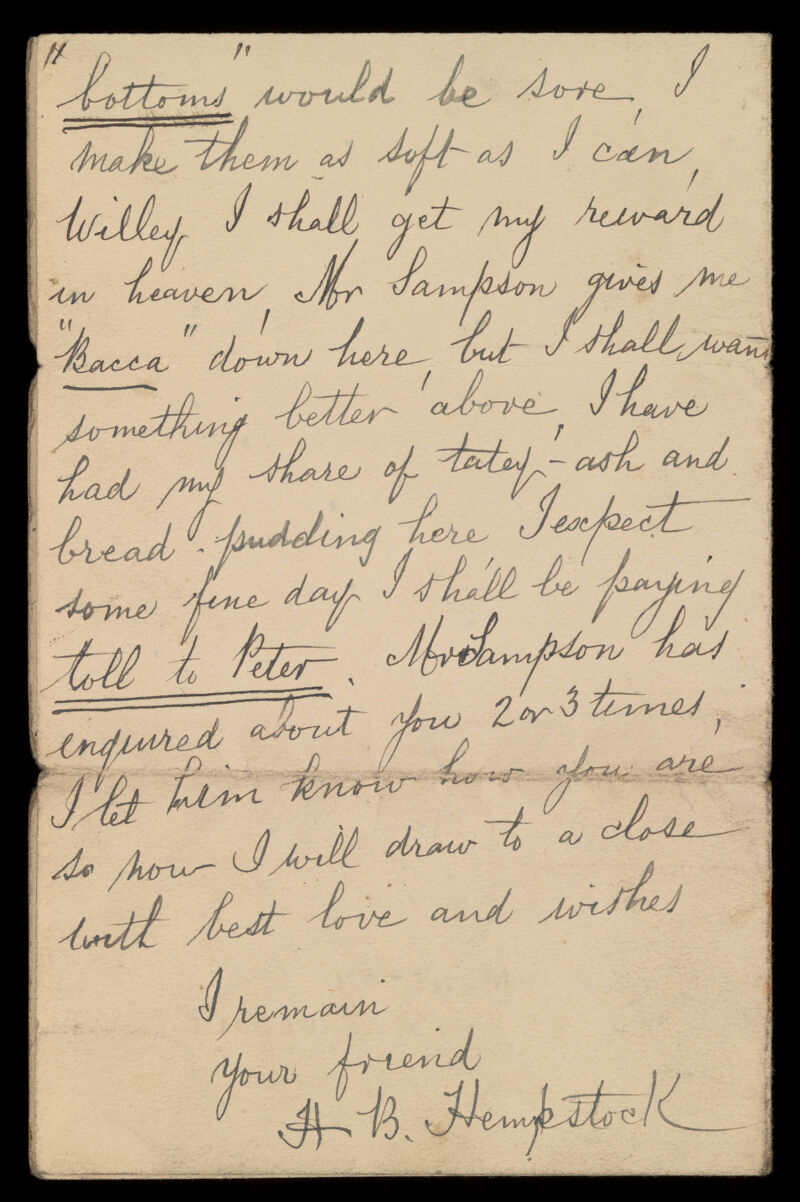 "bottoms" would be sore, I
make them as soft as I can,
Willey I shall get my reward
in heaven, Mr Sampson gives me
"Bacca" down here, but I shall want
something better above, I have
had my share of tatey-ash and
bread-pudding here I expect
some fine day I shall be paying
toll to Peter. Mr Sampson has
enquired about you 2 or 3 times,
I let him know how you are
so now I will draw to a close
with best love and wishes
I remain
your friend
H B. Hempstock